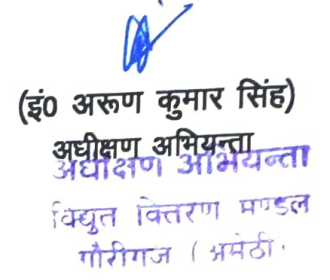 (इं0 अरूण कुमार सिंह)
अधीक्षण अभियन्ता
अधीक्षण अभियन्ता
विद्युत वितरण मण्डल
गौरीगंज (अमेठी.